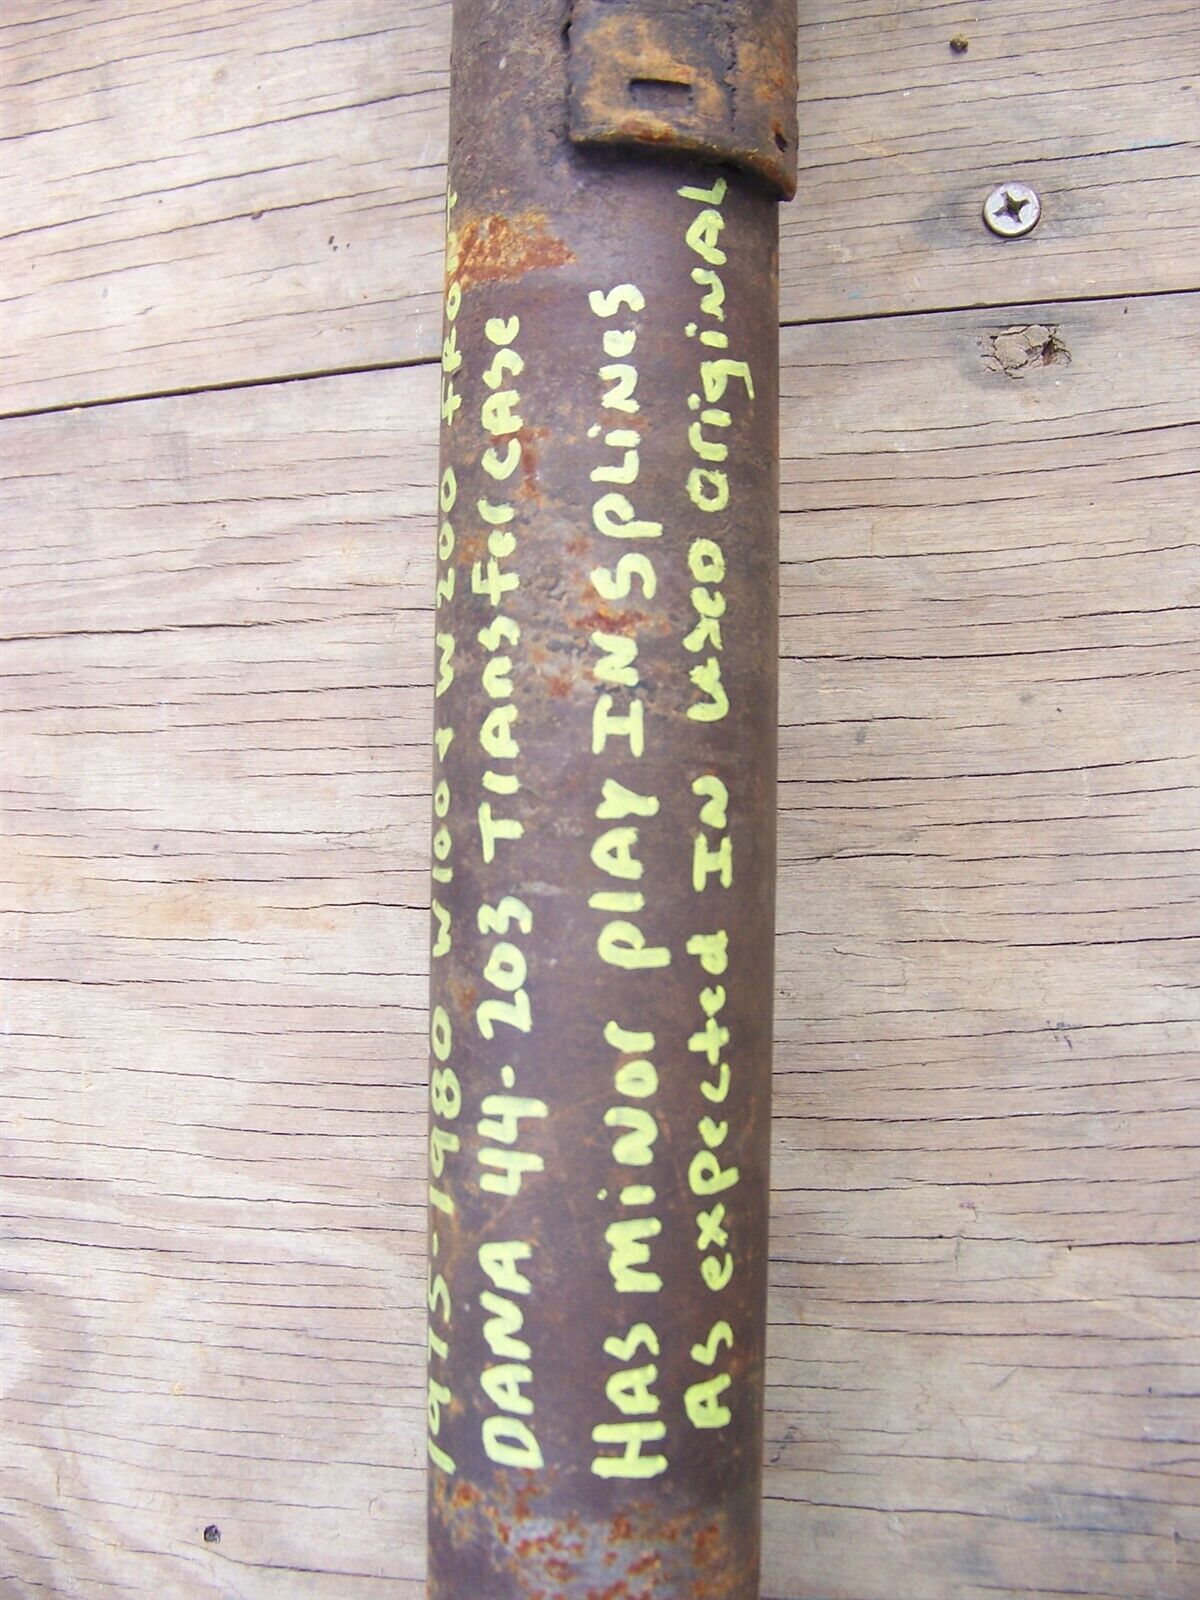 1975-1980 W100 & W200 FRONT
DANA 44-203 TrANsferCASe
HAS MiNor PlAY IN SpliNeS
As expected IN useD OriginAL